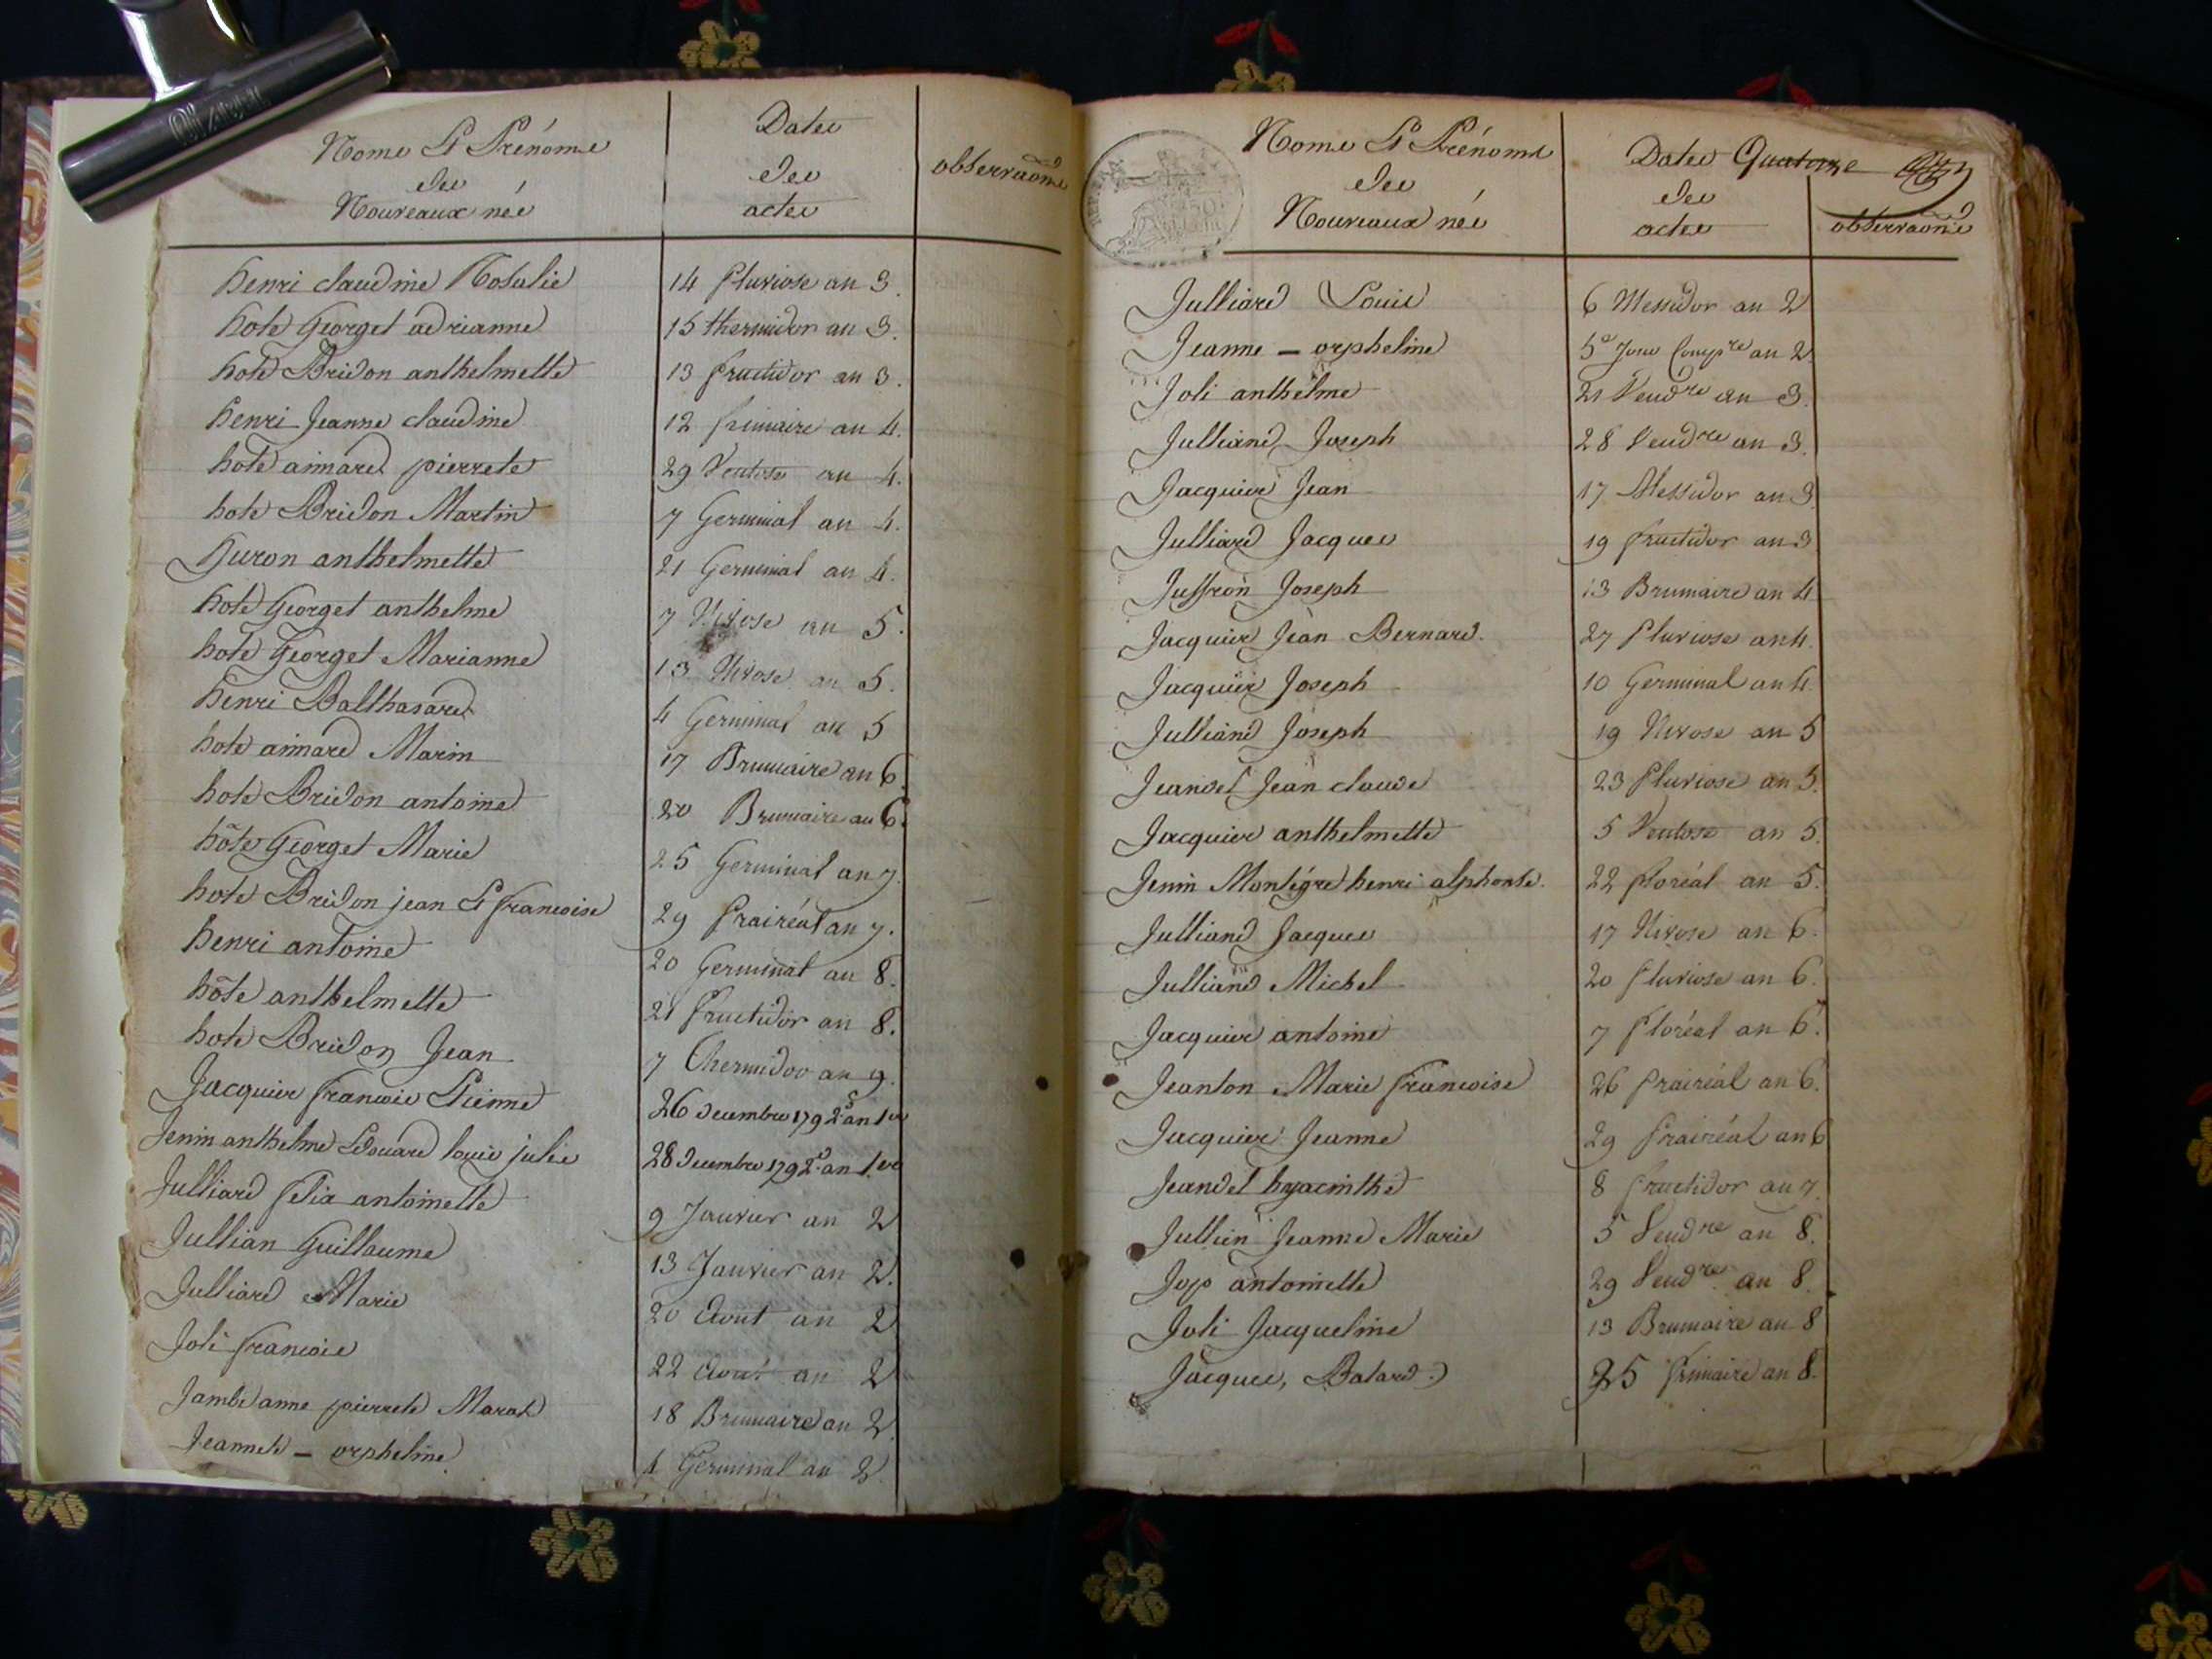 Noms Et Prénoms
des
Nouveaux nés
Dates
des
actes
observaons
henri claudine Rosalie 14 Pluviose an 3.
hote Georget adrianne 15 thermidor an 3.
hote Bridon anthelmette 13 fructidor an 3.
henri Jeanne claudine 12 frimaire an 4.
hote aimard pierrete 29 Ventose an 4.
hote Bridon Martin 7 Germinal an 4.
huron anthelmette 21 Germinal an 4.
hote Georget anthelme 7 Nivose an 5.
hote Georget Marianne 13 Nivose an 5.
henri Balthasard 4 Germinal an 5
hote aimard Marin 17 Brumaire an 6.
hote Bridon antoine 20 Brumaire an 6.
hôte Georget Marie 25 Germinal an 7.
hote Bridon jean Et francoise 29 Prairéal an 7.
henri antoine 20 Germinal an 8.
hôte anthelmette 21 Fructidor an 8.
hote Bridon Jean 7 Thermidor an 9.
Jacquier francois Etienne 26 decembre 1792 an 1er
Jenin anthelme Edouard louis jules 28 decembre 1792 an 1er
Julliard felix antoinette 9 Janvier an 2
Jullian Guillaume 13 Janvier an 2.
Julliard Marie 20 Aout an 2
Joli francois 22 Aout an 2
Jambe anne pierrete Marat 18 Brumaire an 2.
Jeannete - orpheline 4 Germinal an 2.
Noms Et Prénoms
des
Nouveaux nés
Dates Quatorze
des
actes
observaons
Julliard Louis 6 Messidor an 2
Jeanne - orpheline 5e Jour Compre an 2.
Joli anthelme 21 Vendre an 3.
Julliand Joseph 28 Vendre an 3.
Jacquier Jean 17 Messidor an 3.
Julliard Jacques 19 fructidor an 3
Juffron Joseph 13 Brumaire an 4
Jacquier Jean Bernard. 27 Pluviose an 4.
Jacquier Joseph 10 Germinal an 4.
Julliand Joseph 19 Nivose an 5
Jeandet Jean claude 23 Pluviose an 5.
Jacquier anthelmette 5 Ventose an 5.
Jenin Montégre henri alphonse. 22 floréal an 5.
Julliand Jacques 17 Nivose an 6.
Julliand Michel 20 Pluviose an 6.
Jacquier antoine 7 floréal an 6.
Jeanton Marie francoise 26 Prairéal an 6.
Jacquier Jeanne 29 Prairéal an 6
Jeandet hyacinthe 8 fructidor an 7.
Jullien Jeanne Marie 5 Vendre an 8.
Jop antoinette 29 Vendre an 8.
Joli Jacqueline 13 Brumaire an 8
Jacques, Batard. 25 frimaire an 8.